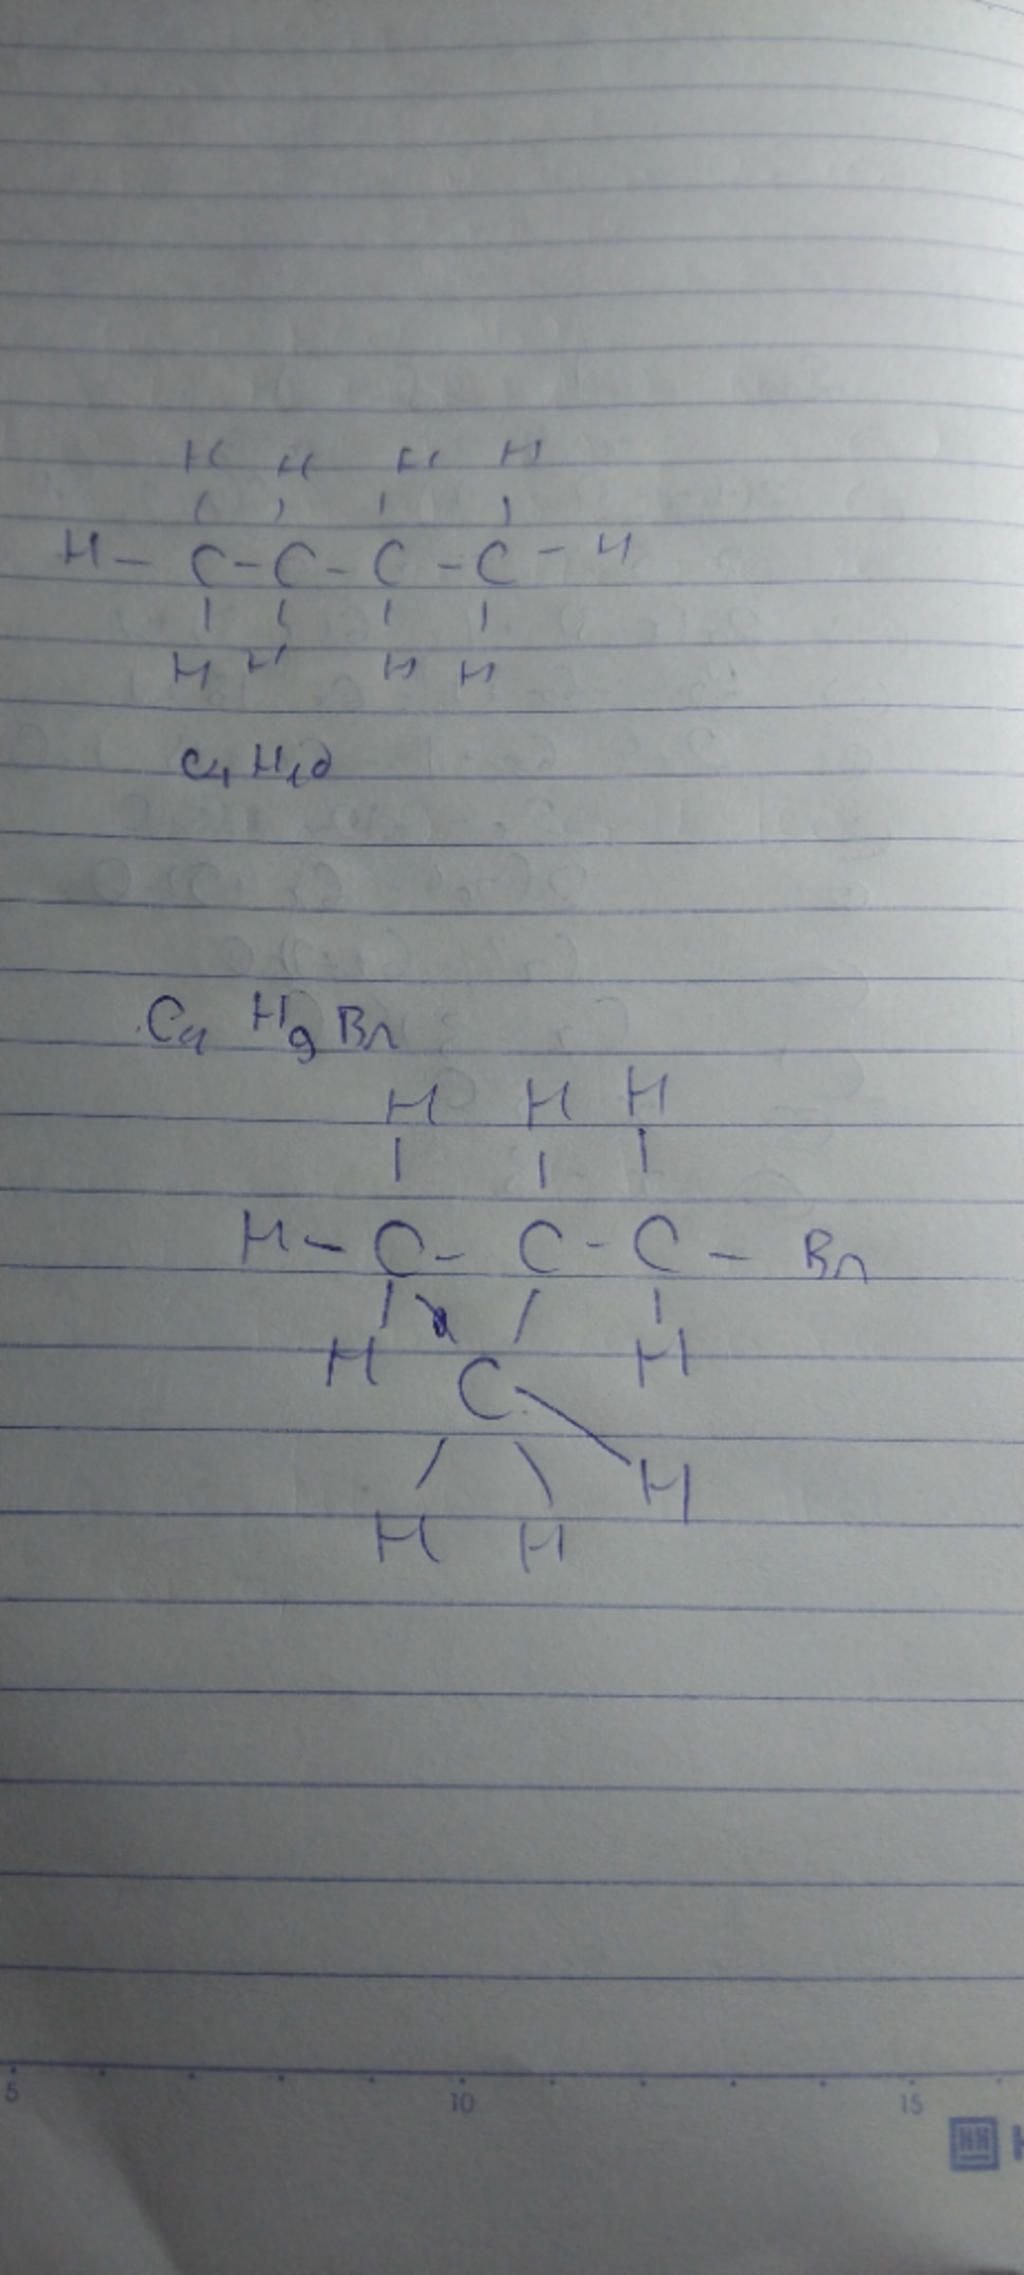 H H H H
H - C - C - C - C - H
H H H H
C4 H10
C4 H9 Br
H H H
H - C - C - C - Br
H C H
H
H H
5 10 15